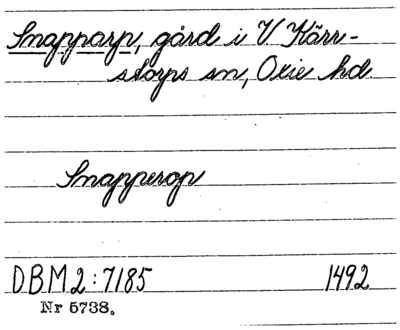 Snapparp, gård i V Kärr-
storps sn, Oxie hd
Snapperop
DBM2:7185 1492
Nr 5738.